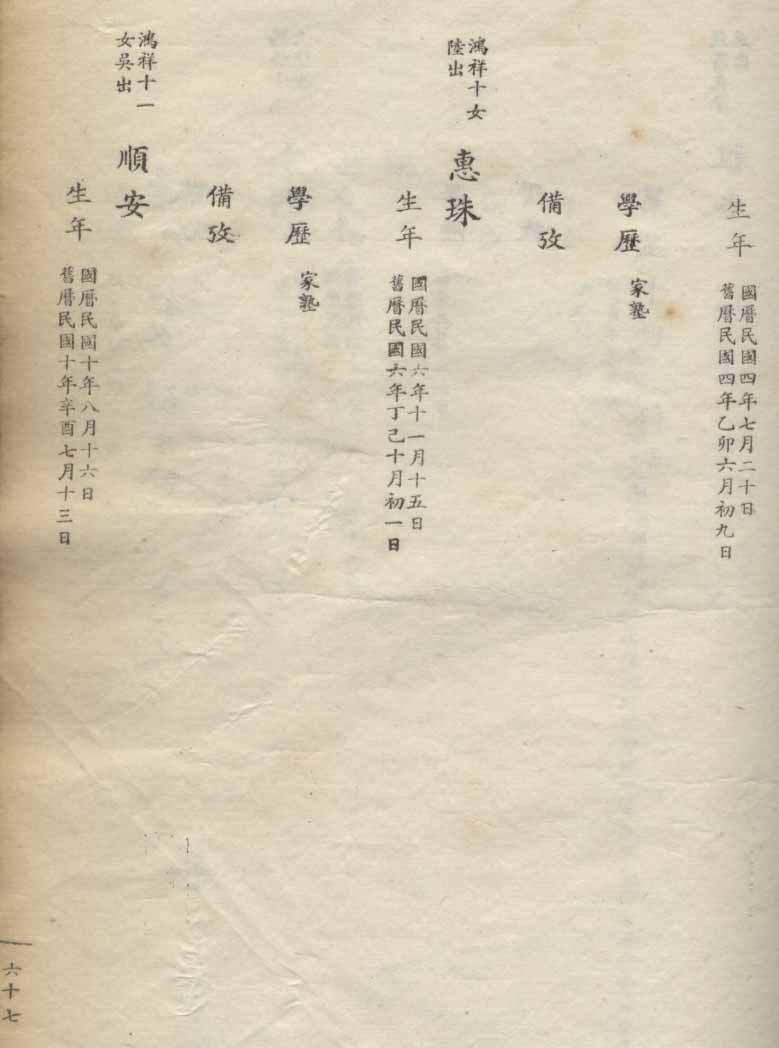 生年
國曆民國四年七月二十日
舊曆民國四年乙卯六月初九日
學歷
家塾
備攷
鴻祥十女
陸出
惠珠
生年
國曆民國六年十一月十五日
舊曆民國六年丁己十月初一日
學歷
家塾
備攷
鴻祥十一
女吳出
順安
生年
國曆民國十年八月十六日
舊曆民國十年辛酉七月十三日
六十七